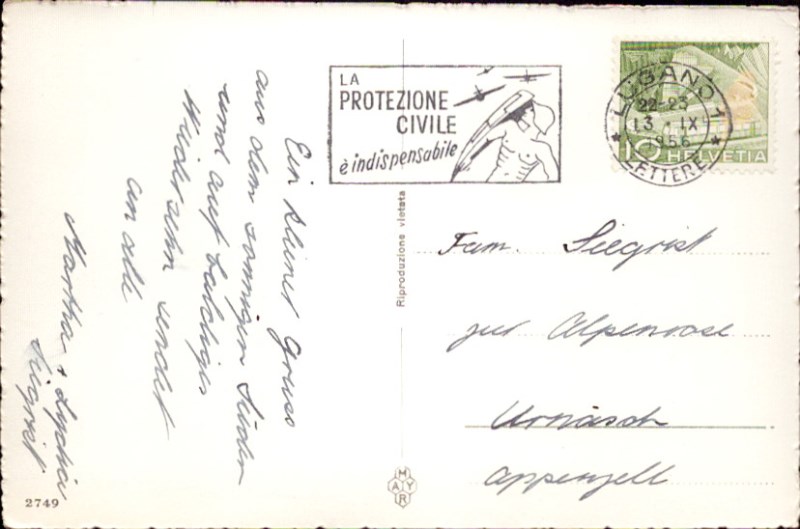 Ein kleiner Gruss
aus dem sonnigen Süden
und auf baldiges
Wiedersehn sendet
an alle
Martha + Lydia
Siegrist
LA
PROTEZIONE
CIVILE
è indispensabile
LUGANO 1
22-23
13. IX
1956
LETTERE
10 HELVETIA
Riproduzione vietata
Fam. Siegrist
zur Alpenrose
Urnäsch
Appenzell
MAYR
2749